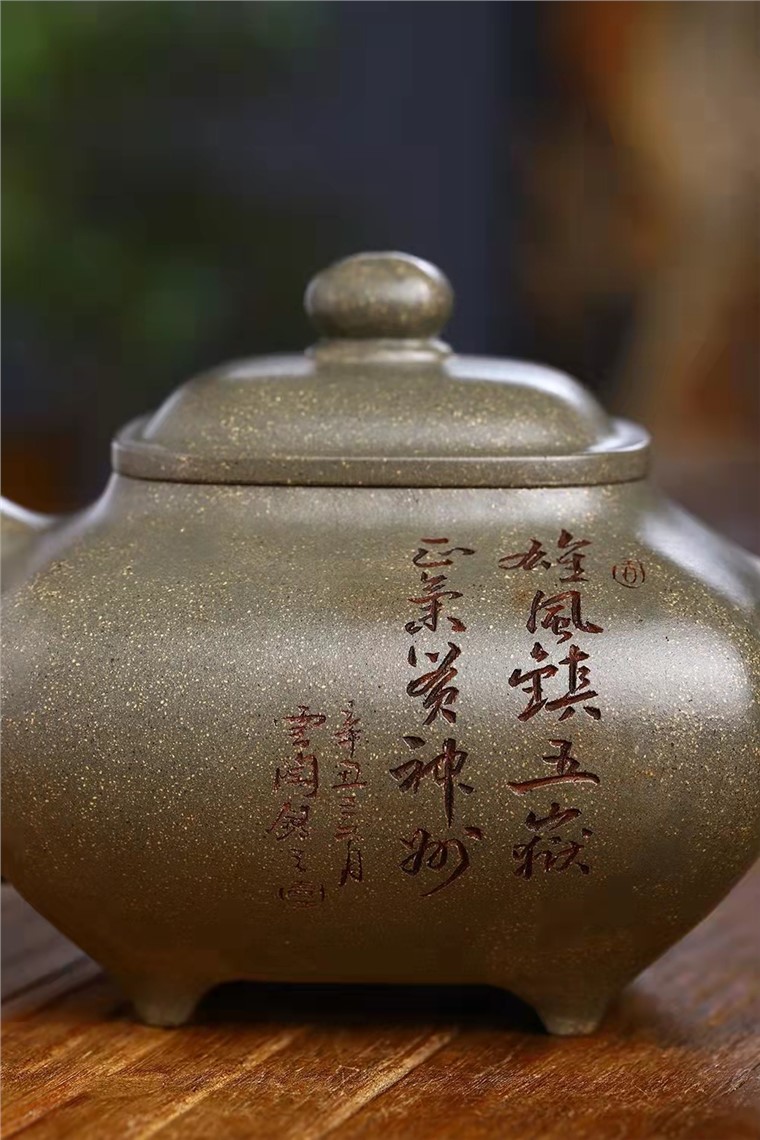 雄風鎮五嶽
正氣貫神州
辛丑三月
雲陶銘之